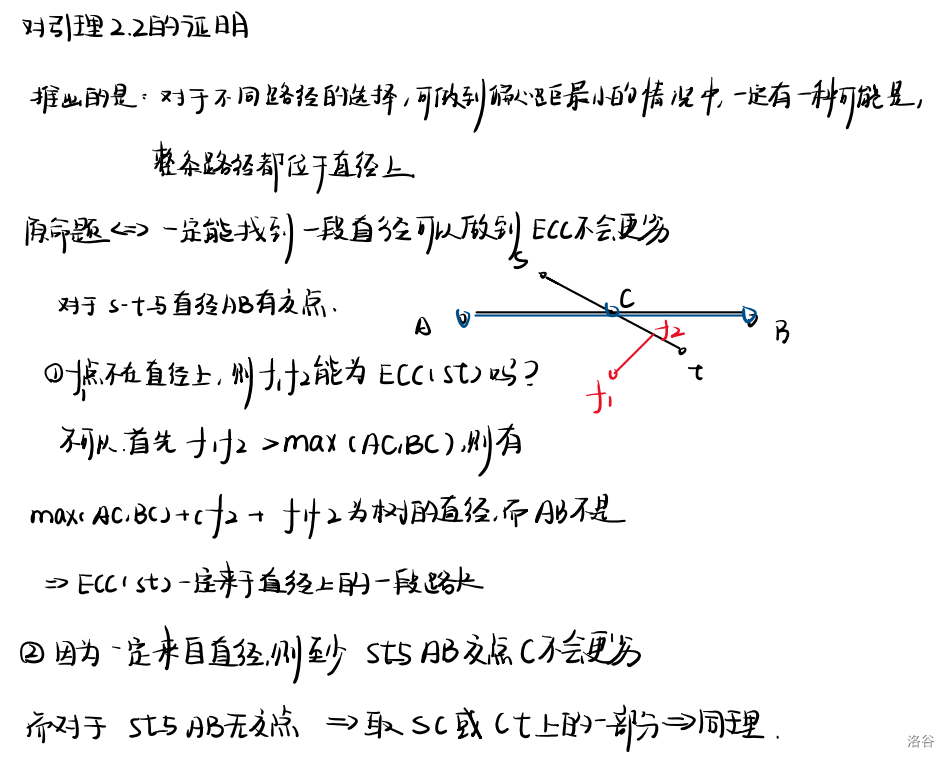 对引理2.2的证明
推出的是：对于不同路径的选择，可做到偏心距最小的情况中，一定有一种可能是，
整条路径都位于直径上.
原命题<=>一定能找到一段直径可以做到ECC不会更劣
对于s-t与直径AB有交点.
S
C
A
B
f2
t
f1
①f1点不在直径上，则f1f2能为ECC(st)吗?
不可以.首先f1f2>max(AC,BC),则有
max(AC,BC)+cf2+f1f2为树的直径,而AB不是
=>ECC(st)一定来于直径上的一段路长
②因为一定来自直径,则至少st与AB交点C不会更劣
而对于st与AB无交点=>取SC或Ct上的一部分=>同理.
洛谷